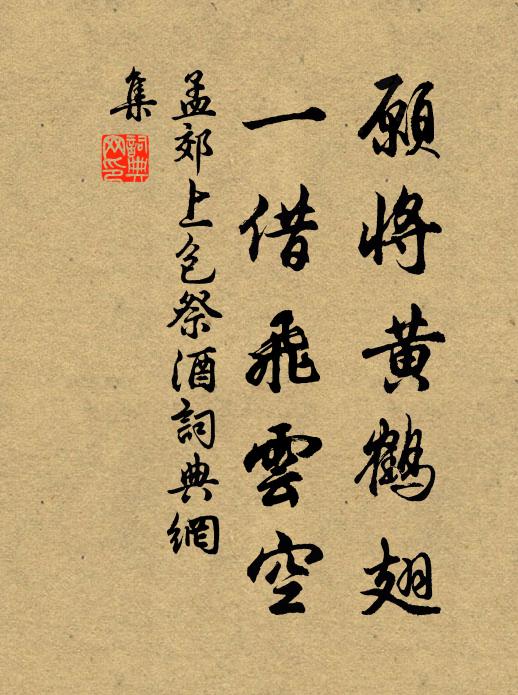 願將黃鶴翅
一借飛雲空
孟郊上包祭酒詞典網
集
詞典網印